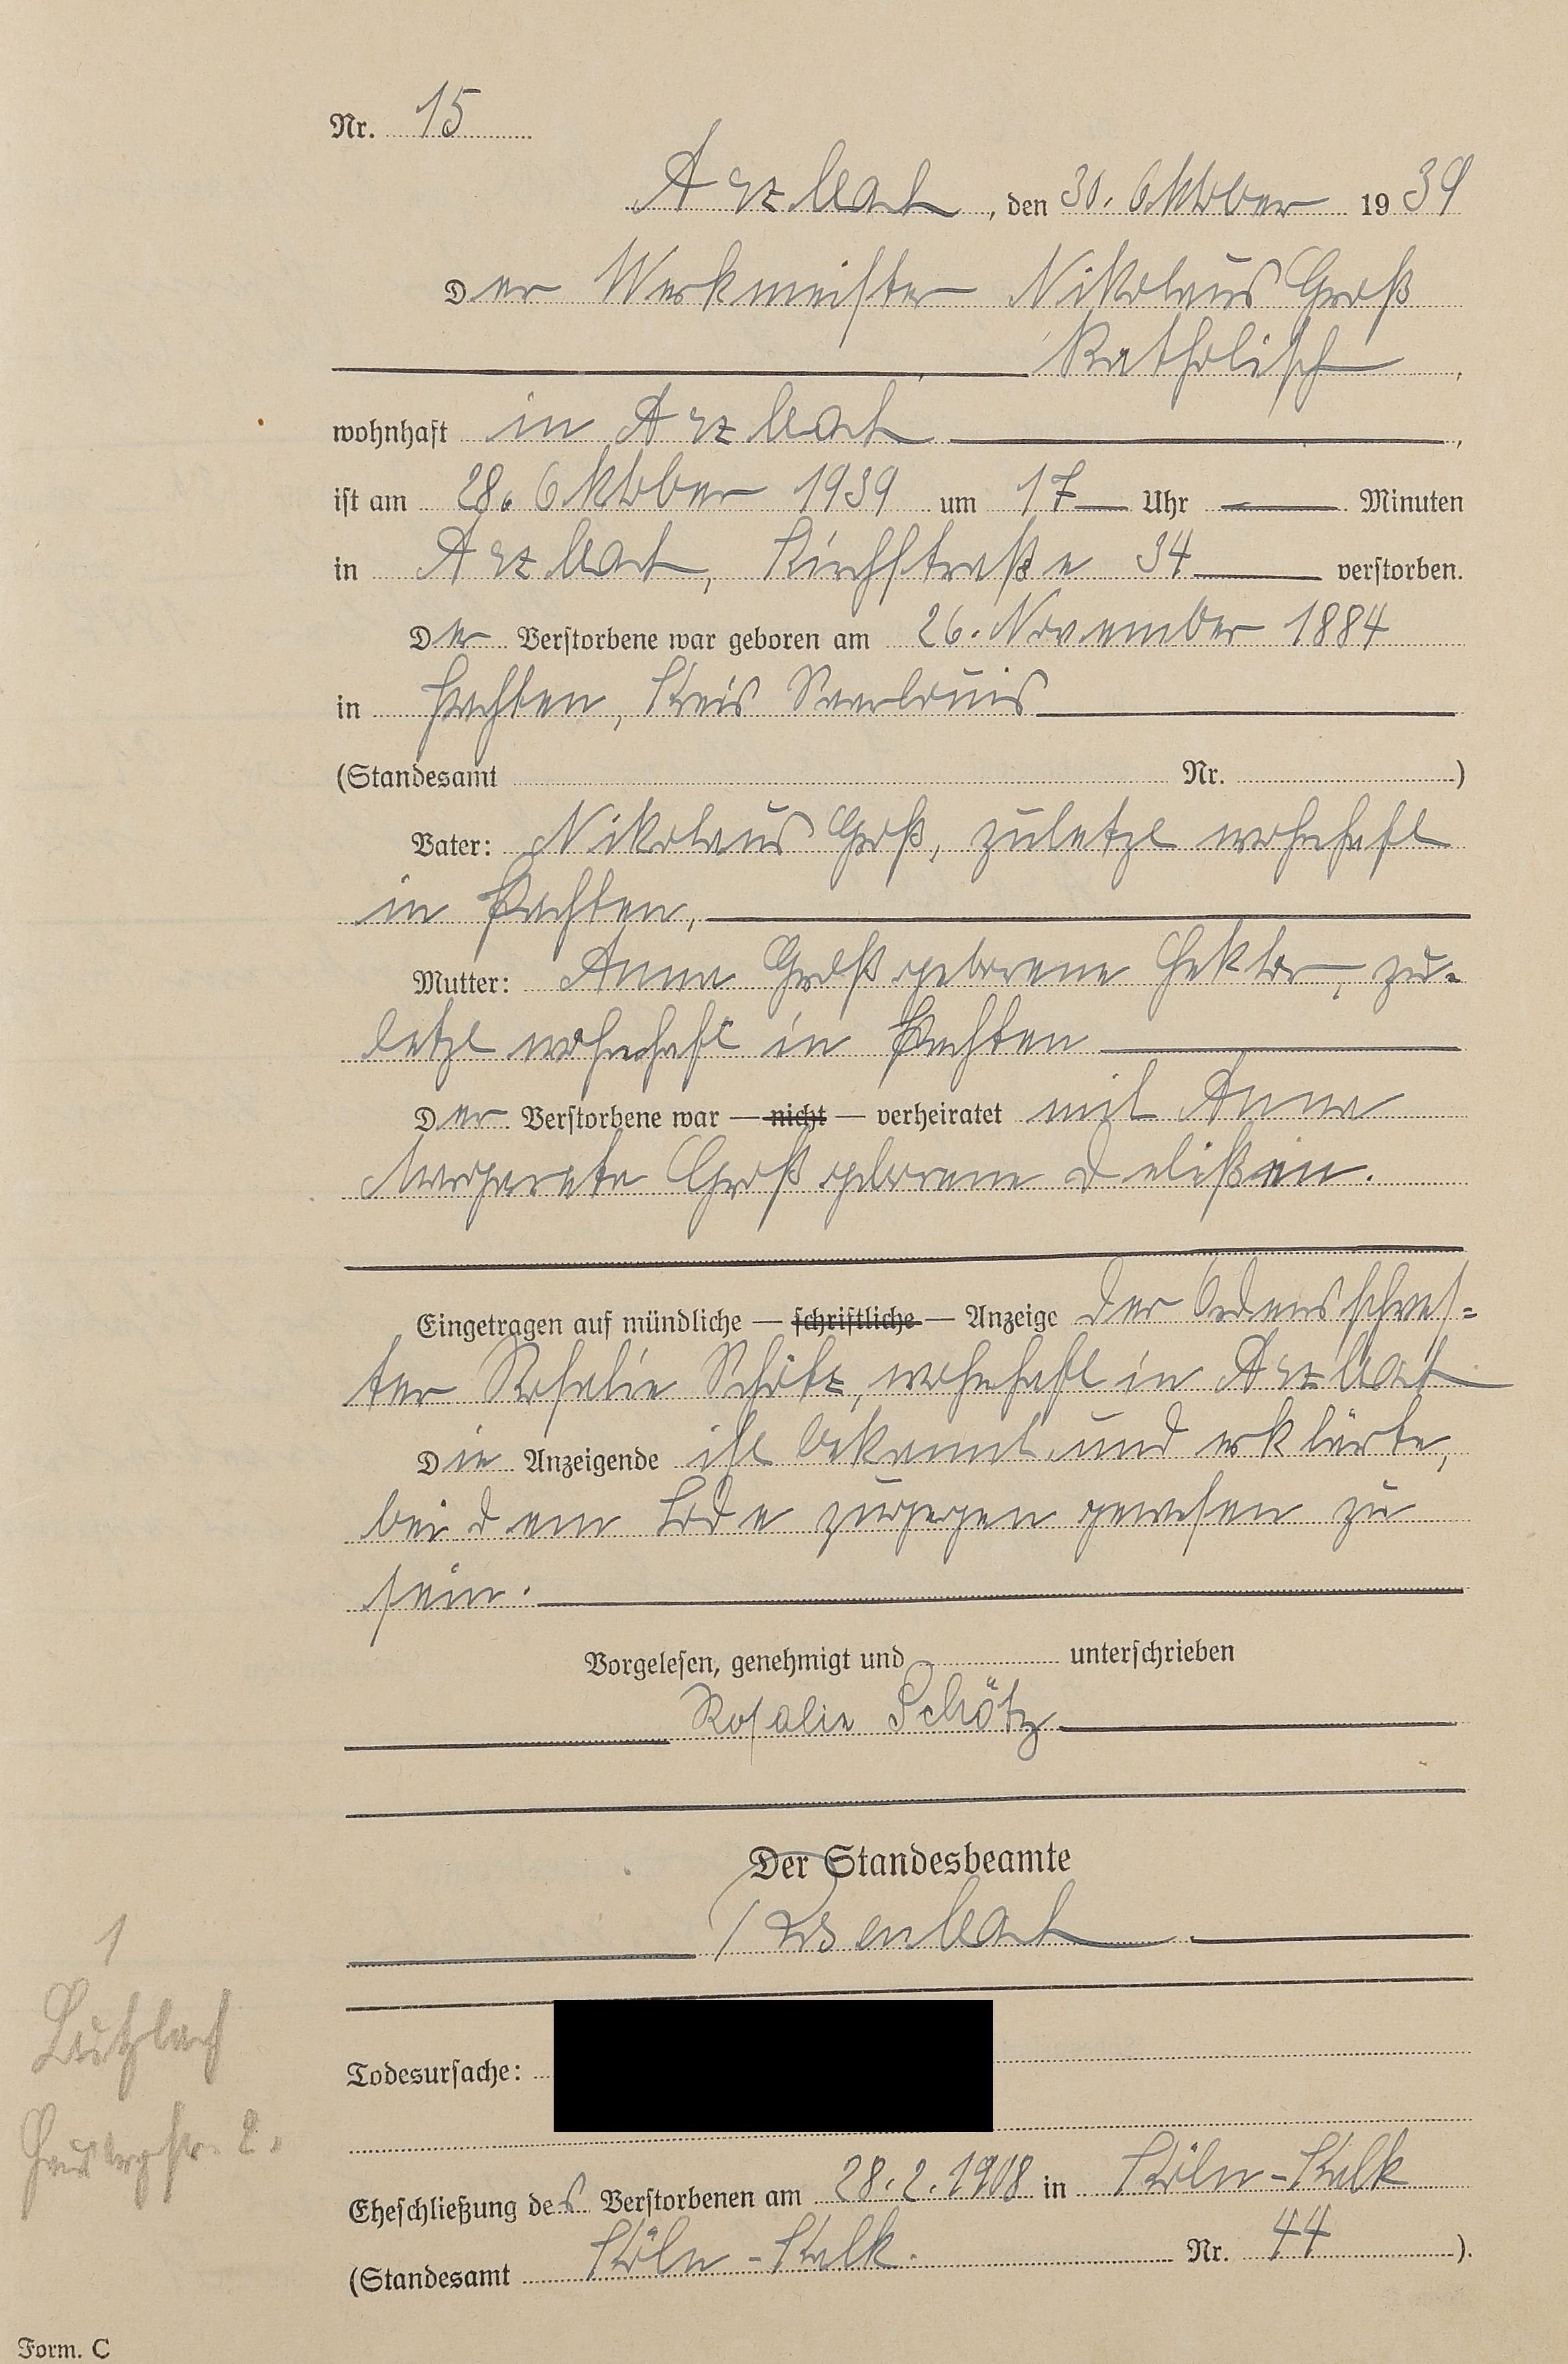 Nr. 15
Arzbach, den 30. Oktober 1939
Der Werkmeister Nikolaus Groß
Katholisch,
wohnhaft in Arzbach,
ist am 28. Oktober 1939 um 17 Uhr Minuten
in Arzbach, Kirchstraße 34 verstorben.
Der Verstorbene war geboren am 26. November 1884
in Pachten, Kreis Saarlouis
(Standesamt Nr. )
Vater: Nikolaus Groß, zuletzt wohnhaft
in Pachten,
Mutter: Anna Groß geborene Hektor, zu-
letzt wohnhaft in Pachten
Der Verstorbene war — nicht — verheiratet mit Anna
Margareta Groß geborene Delißen.
Eingetragen auf mündliche — schriftliche — Anzeige der Ordensschwes-
ter Rosalie Schötz, wohnhaft in Arzbach
Die Anzeigende ist bekannt und erklärte,
bei dem Tode zugegen gewesen zu
sein.
Vorgelesen, genehmigt und unterschrieben
Rosalie Schötz
Der Standesbeamte
1
Todesursache:
Eheschließung des Verstorbenen am 28.2.1908 in Köln-Kalk
(Standesamt Köln-Kalk. Nr. 44 ).
Form. C